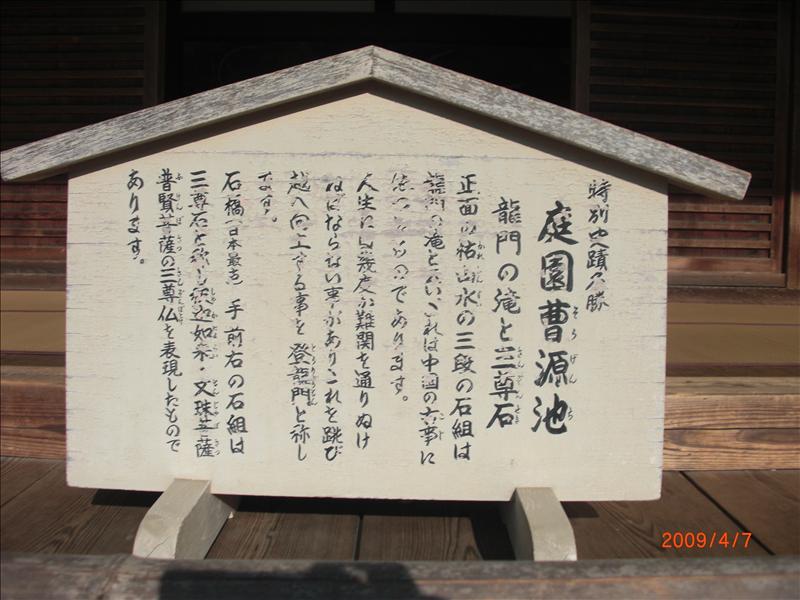 特別史蹟名勝
庭園曹源池
そうげんち
龍門の滝と三尊石
さんぞんせき
正面の枯山水の三段の石組は
龍門の滝と云いこれは中国の古事に
であります。
人生には幾度か難関を通りぬけ
ねばならない事がありこれを跳び
越へ向上する事を登龍門と称し
とうりゅうもん
ます。
石橋(日本最古)手前右の石組は
三尊石と称し釈迦如来・文珠菩薩
普賢菩薩の三尊仏を表現したもので
あります。
2009/4/7